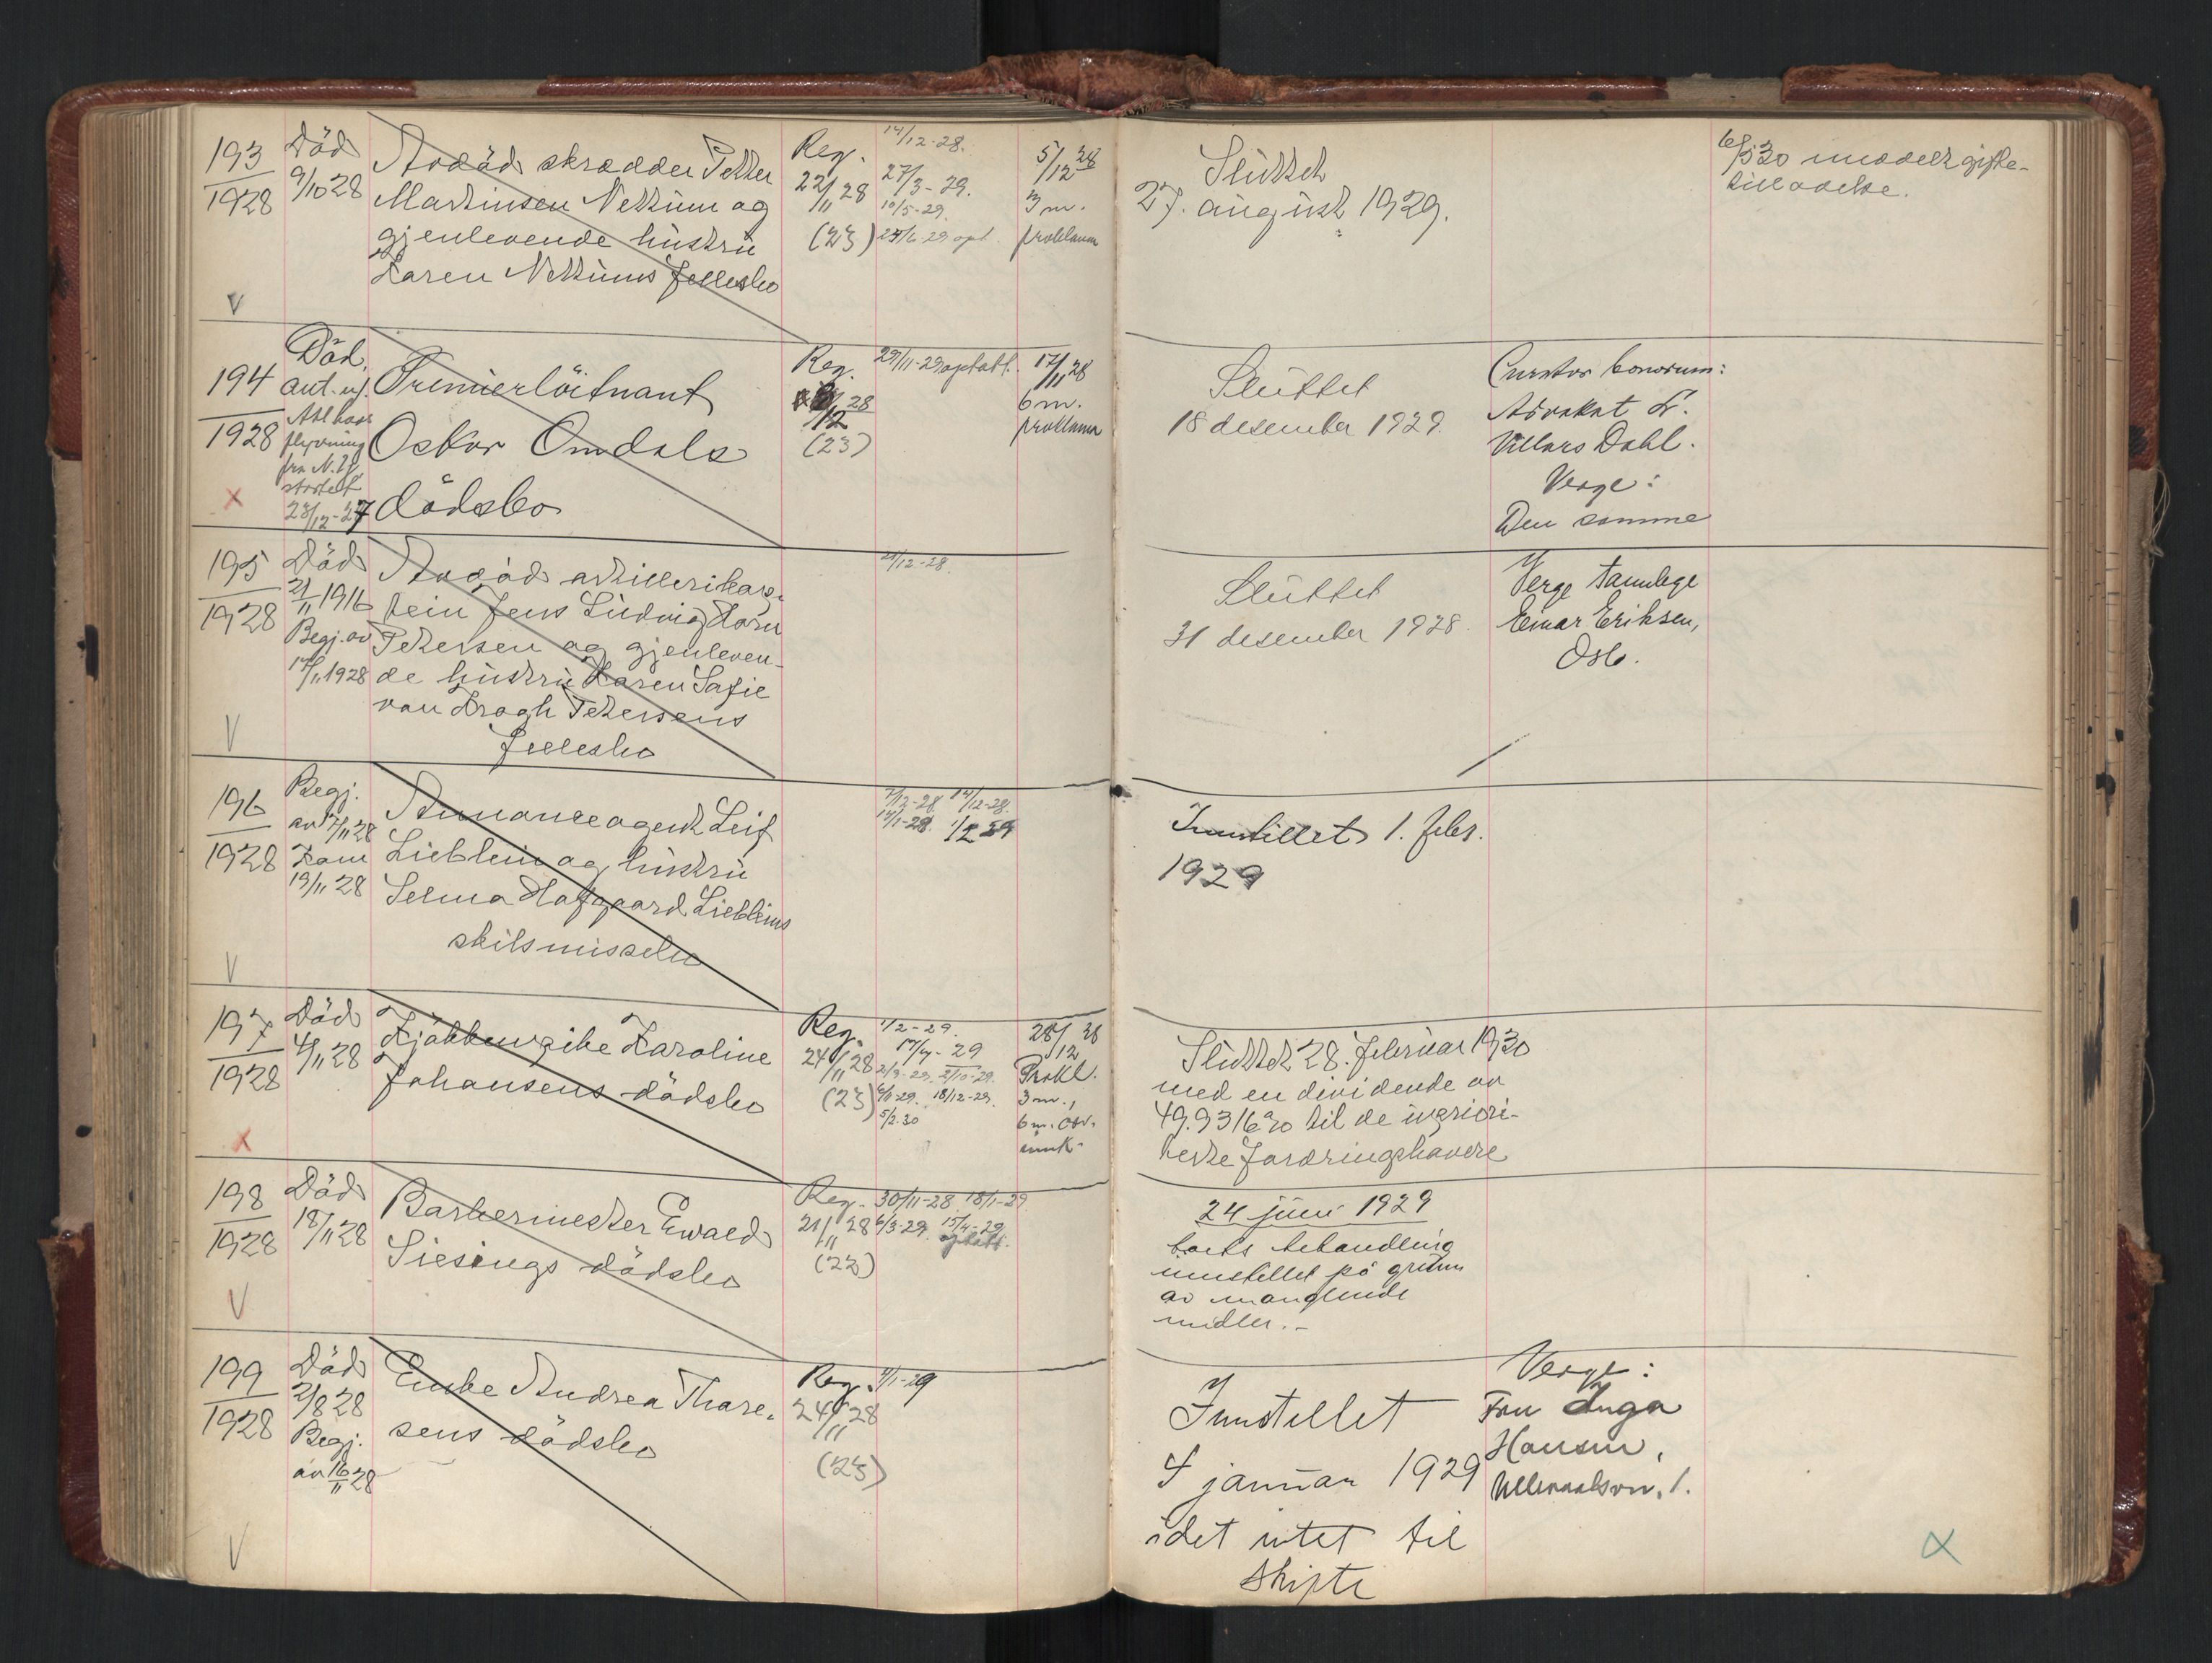 193
1928
Död
9/10 28
Avdöd skrædder Petter
Martinsen Nettum og
gjenlevende hustru
Karen Nettums fellesbo
Reg.
22/11 28
(23)
14/12-28.
27/3-29.
10/5-29.
5/12 28
3 m.
proklama
Sluttet
27. august 1929.
6/5 30 meddelt gifte-
tilladelse.
V
194
1928
Död,
ant. u/.
Atl havs
flyvning
fra N.Y.
startet
23/12-27
Premierlöitnant
Oskar Omdals
dödsbo
Reg.
12
(23)
29/11-29 optatt.
17/11 28
6 m.
proklama
Sluttet
18 desember 1929.
Curator bonorum:
Advokat L.
Villars Dahl.
Verge:
Den samme
X
195
1928
Död
21/11 1916
Begj. av
17/11 1928
Avdöd artillerikap-
tein Jens Ludvig Horn
Petersen og gjenleven-
de hustru Karen Sofie
von Krogh Petersens
fellesbo
21/12-28.
Sluttet
31 desember 1928.
Verge tannlege
Einar Eriksen,
Oslo.
V
196
1928
Begj.
av 7/11 28
Kom
19/11 28
Annonceagent Leif
Lieblein og hustru
Selma Hafgaard Liebleins
skilsmissebo
7/12-28 14/12-28.
1/2 29
Innstillet 1. febr.
1929
V
197
1928
Död
4/11 28
Kjökkenpike Karoline
Johansens dödsbo
Reg.
24/11 28
(23)
1/2-29.
17/4-29
2/10-29.
18/12-29.
5/2.30
28/12 28
Prokl.
3 m.,
6 m. osv.
Sluttet 28. februar 1930
med en dividende av
49.9316% til de uprიori-
terte fordringshavere
X
198
1928
Död
18/11 28
Barbermester Ewald
Siesings dödsbo
Reg.
21/11 28
(23)
30/11-28 18/1-29
6/3-29. 15/4-29.
optatt.
24 juni 1929
boets behandling
innstillet på grunn
av manglende
midler.-
V
199
1928
Död
2/8 28
Begj.
av 16/11 28
Enke Andrea Thore-
sens dödsbo
Reg.
24/11 28
(23)
4/1-29
Innstillet
4 januar 1929
idet intet til
skifte
Verge:
Fru Inga
Hansen,
Ullevaalsvn. 1.
V